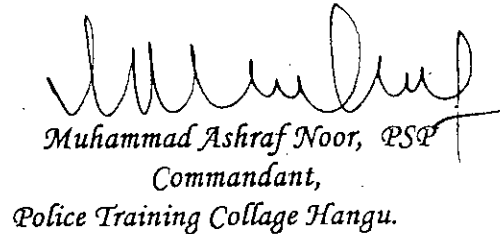 Muhammad Ashraf Noor, PSP
Commandant,
Police Training Collage Hangu.